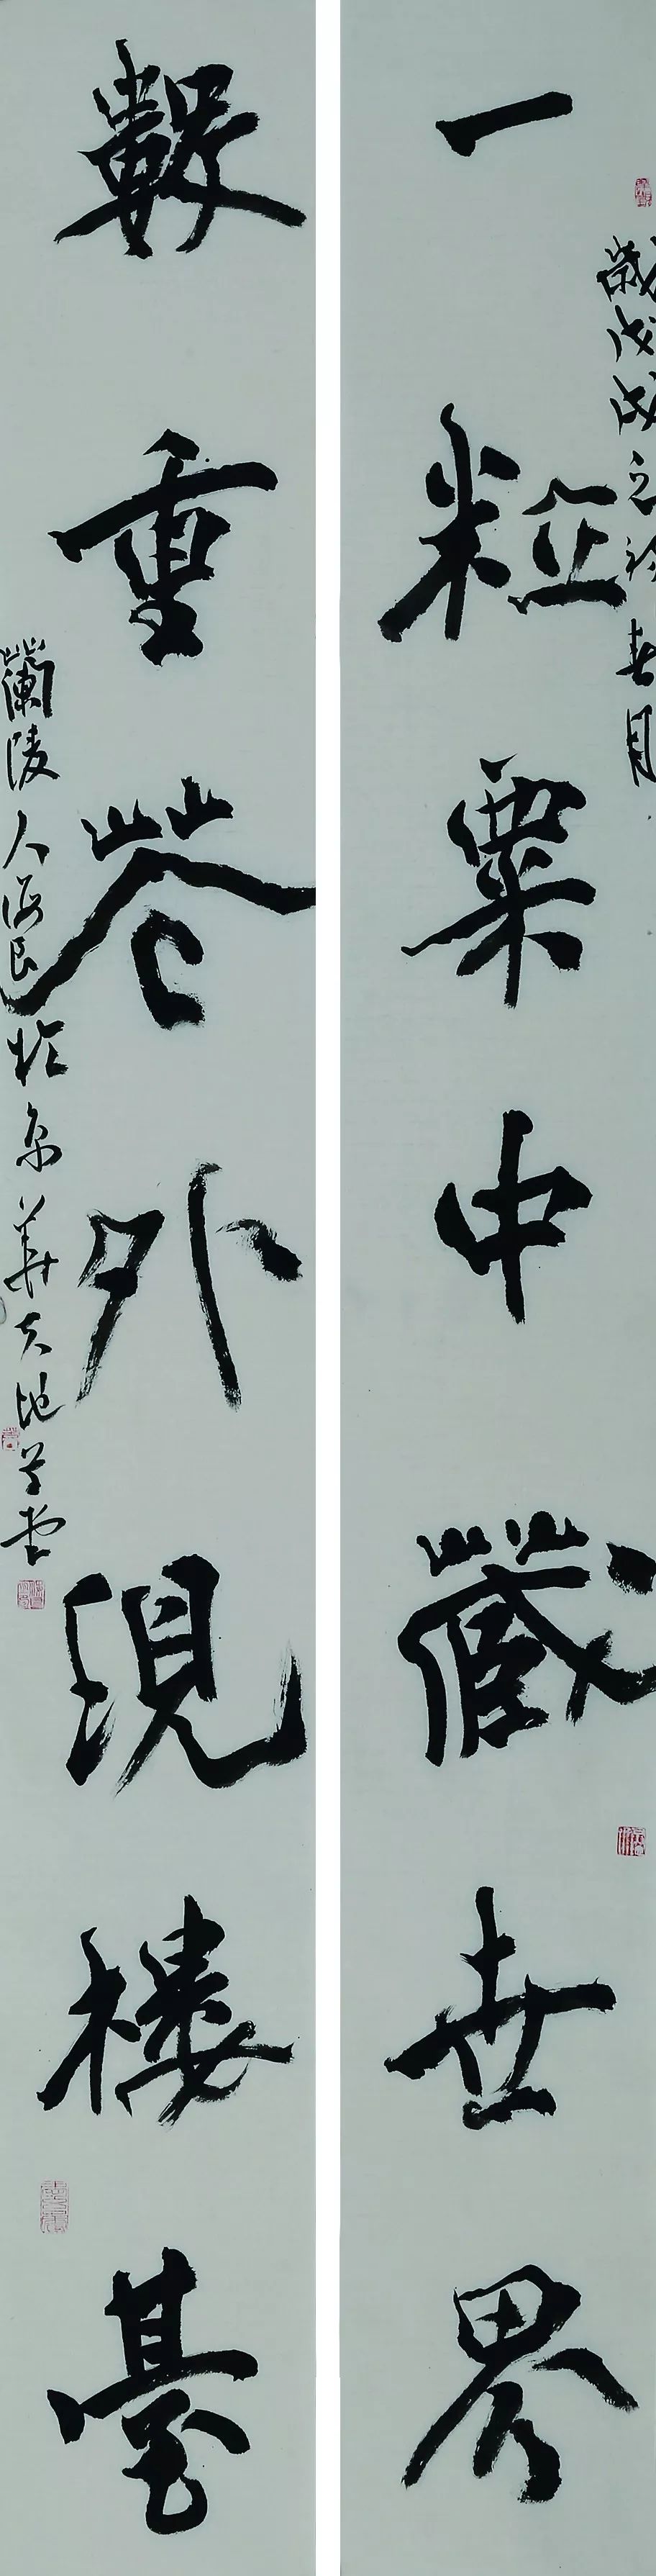 歲戊戌之初春月
一粒粟中藏世界
數重花外現樓臺
蘭陵人海於京華天地草堂